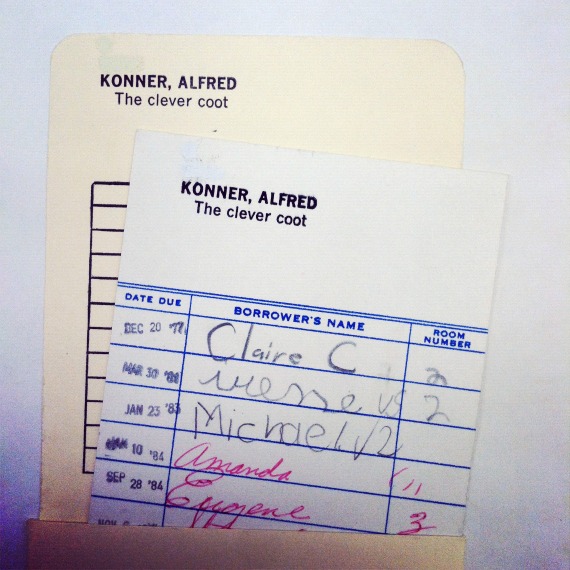 KONNER, ALFRED
The clever coot
KONNER, ALFRED
The clever coot
DATE DUE BORROWER'S NAME ROOM NUMBER
DEC 20 '77 Claire C 2
MAR 30 2
JAN 23 '83 Michael. V2
JAN 10 '84 Amanda
SEP 28 '84 Eugene 3